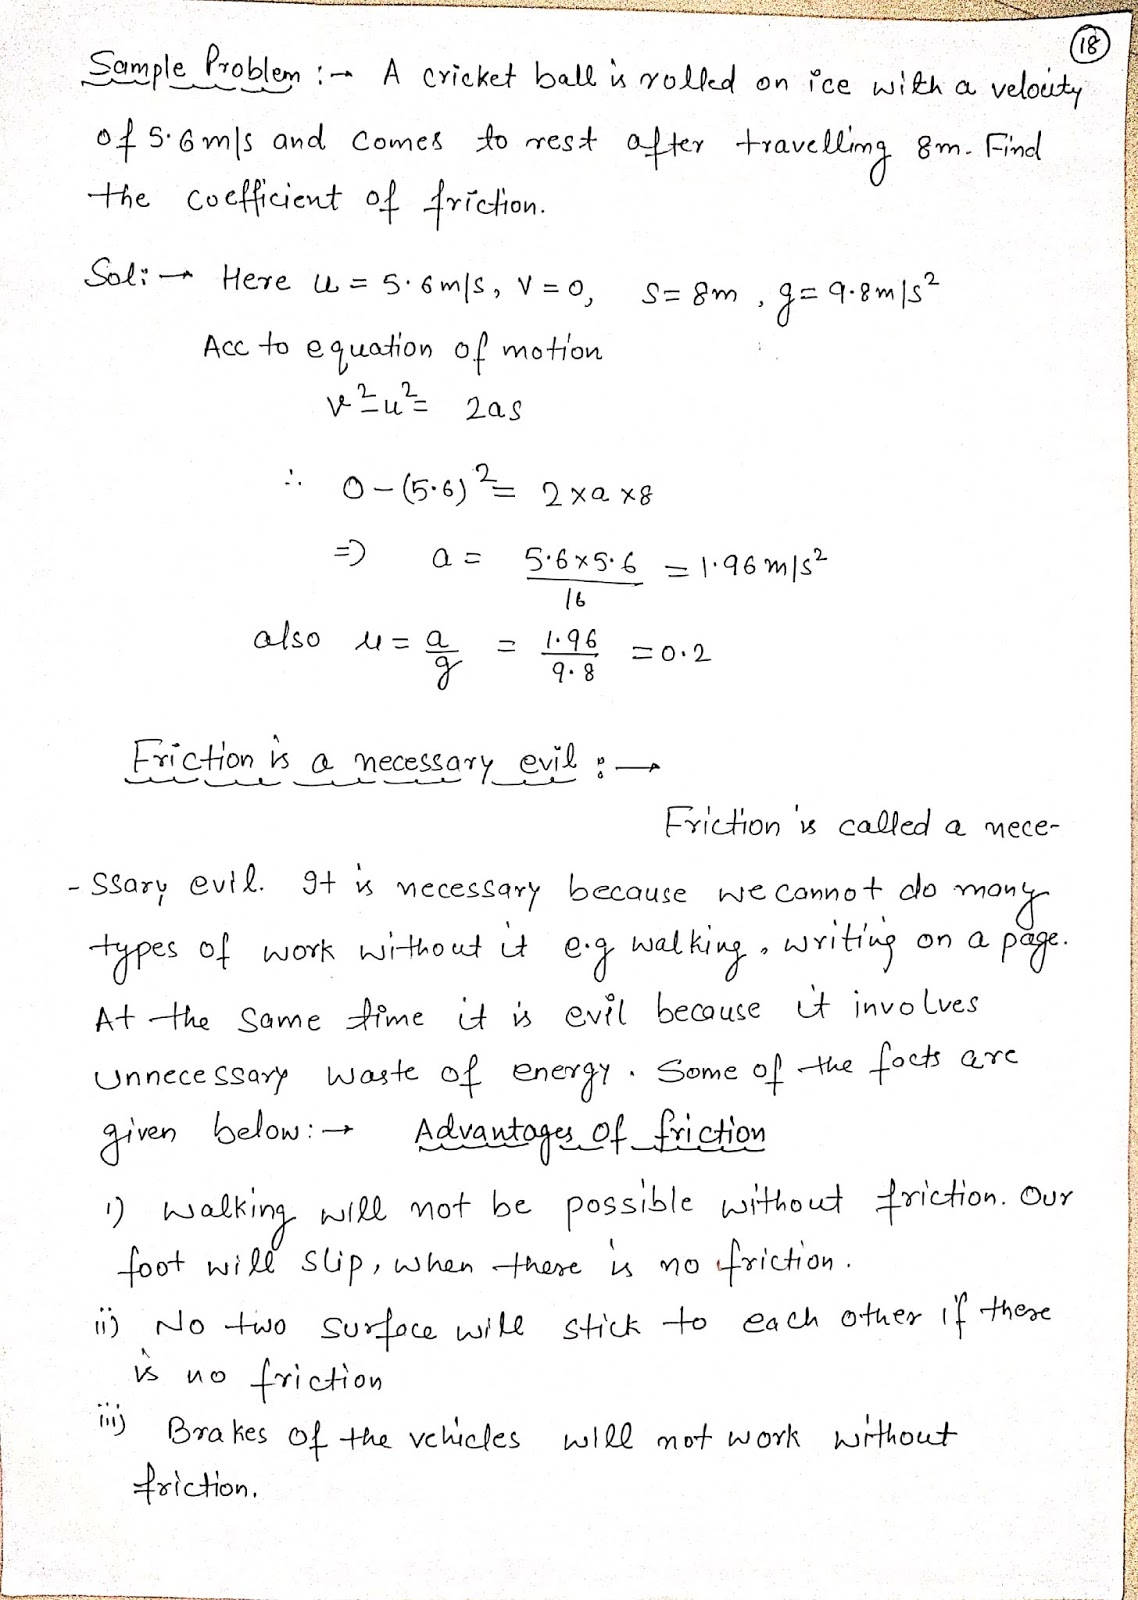 18
Sample Problem :→ A cricket ball is rolled on ice with a velocity
of 5.6 m/s and comes to rest after travelling 8m. Find
the coefficient of friction.
Sol:→ Here u = 5.6 m/s, v = 0, s = 8m, g = 9.8 m/s²
Acc to equation of motion
v² - u² = 2as
∴ 0 - (5.6)² = 2 × a × 8
⇒ a = 5.6 × 5.6 / 16 = 1.96 m/s²
also μ = a/g = 1.96/9.8 = 0.2
Friction is a necessary evil :→
Friction is called a nece-
- ssary evil. It is necessary because we cannot do many
types of work without it e.g walking, writing on a page.
At the same time it is evil because it involves
unnecessary waste of energy. Some of the facts are
given below:→ Advantages of friction
i) walking will not be possible without friction. Our
foot will slip, when there is no friction.
ii) No two surface will stick to each other if there
is no friction
iii) Brakes of the vehicles will not work without
friction.